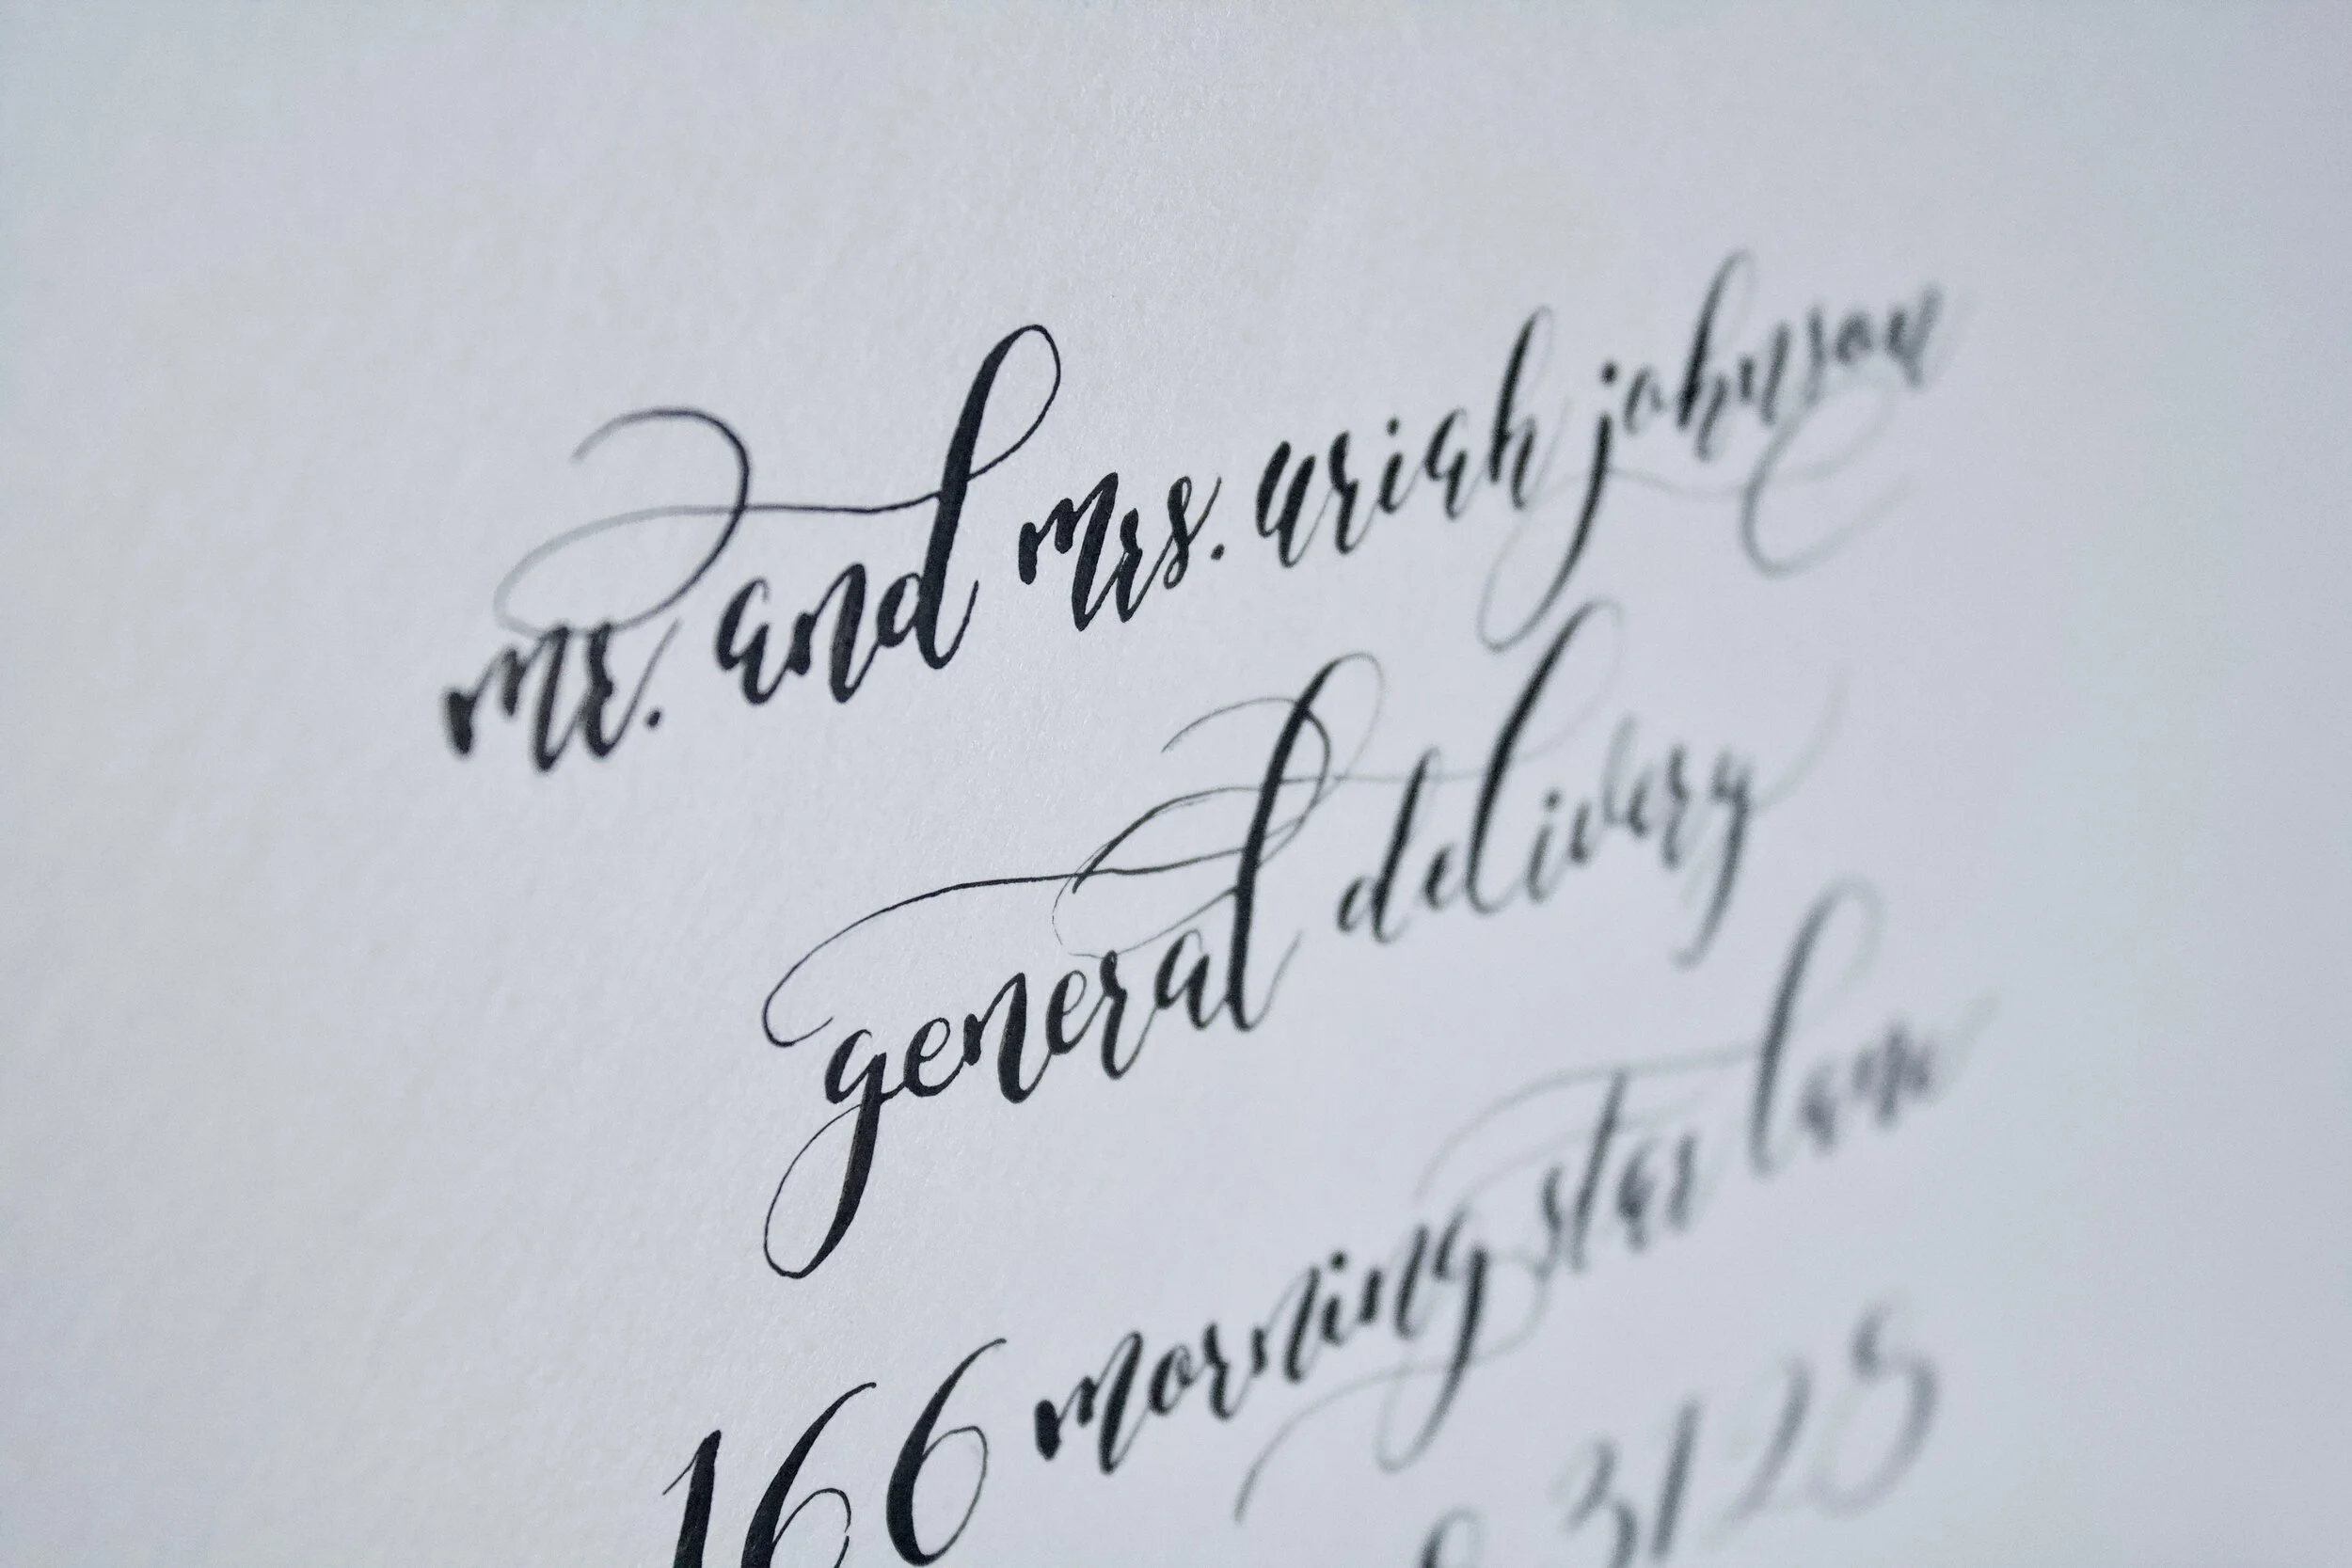 mr. and mrs. uriah johnson
general delivery
166 morning star lane
3125